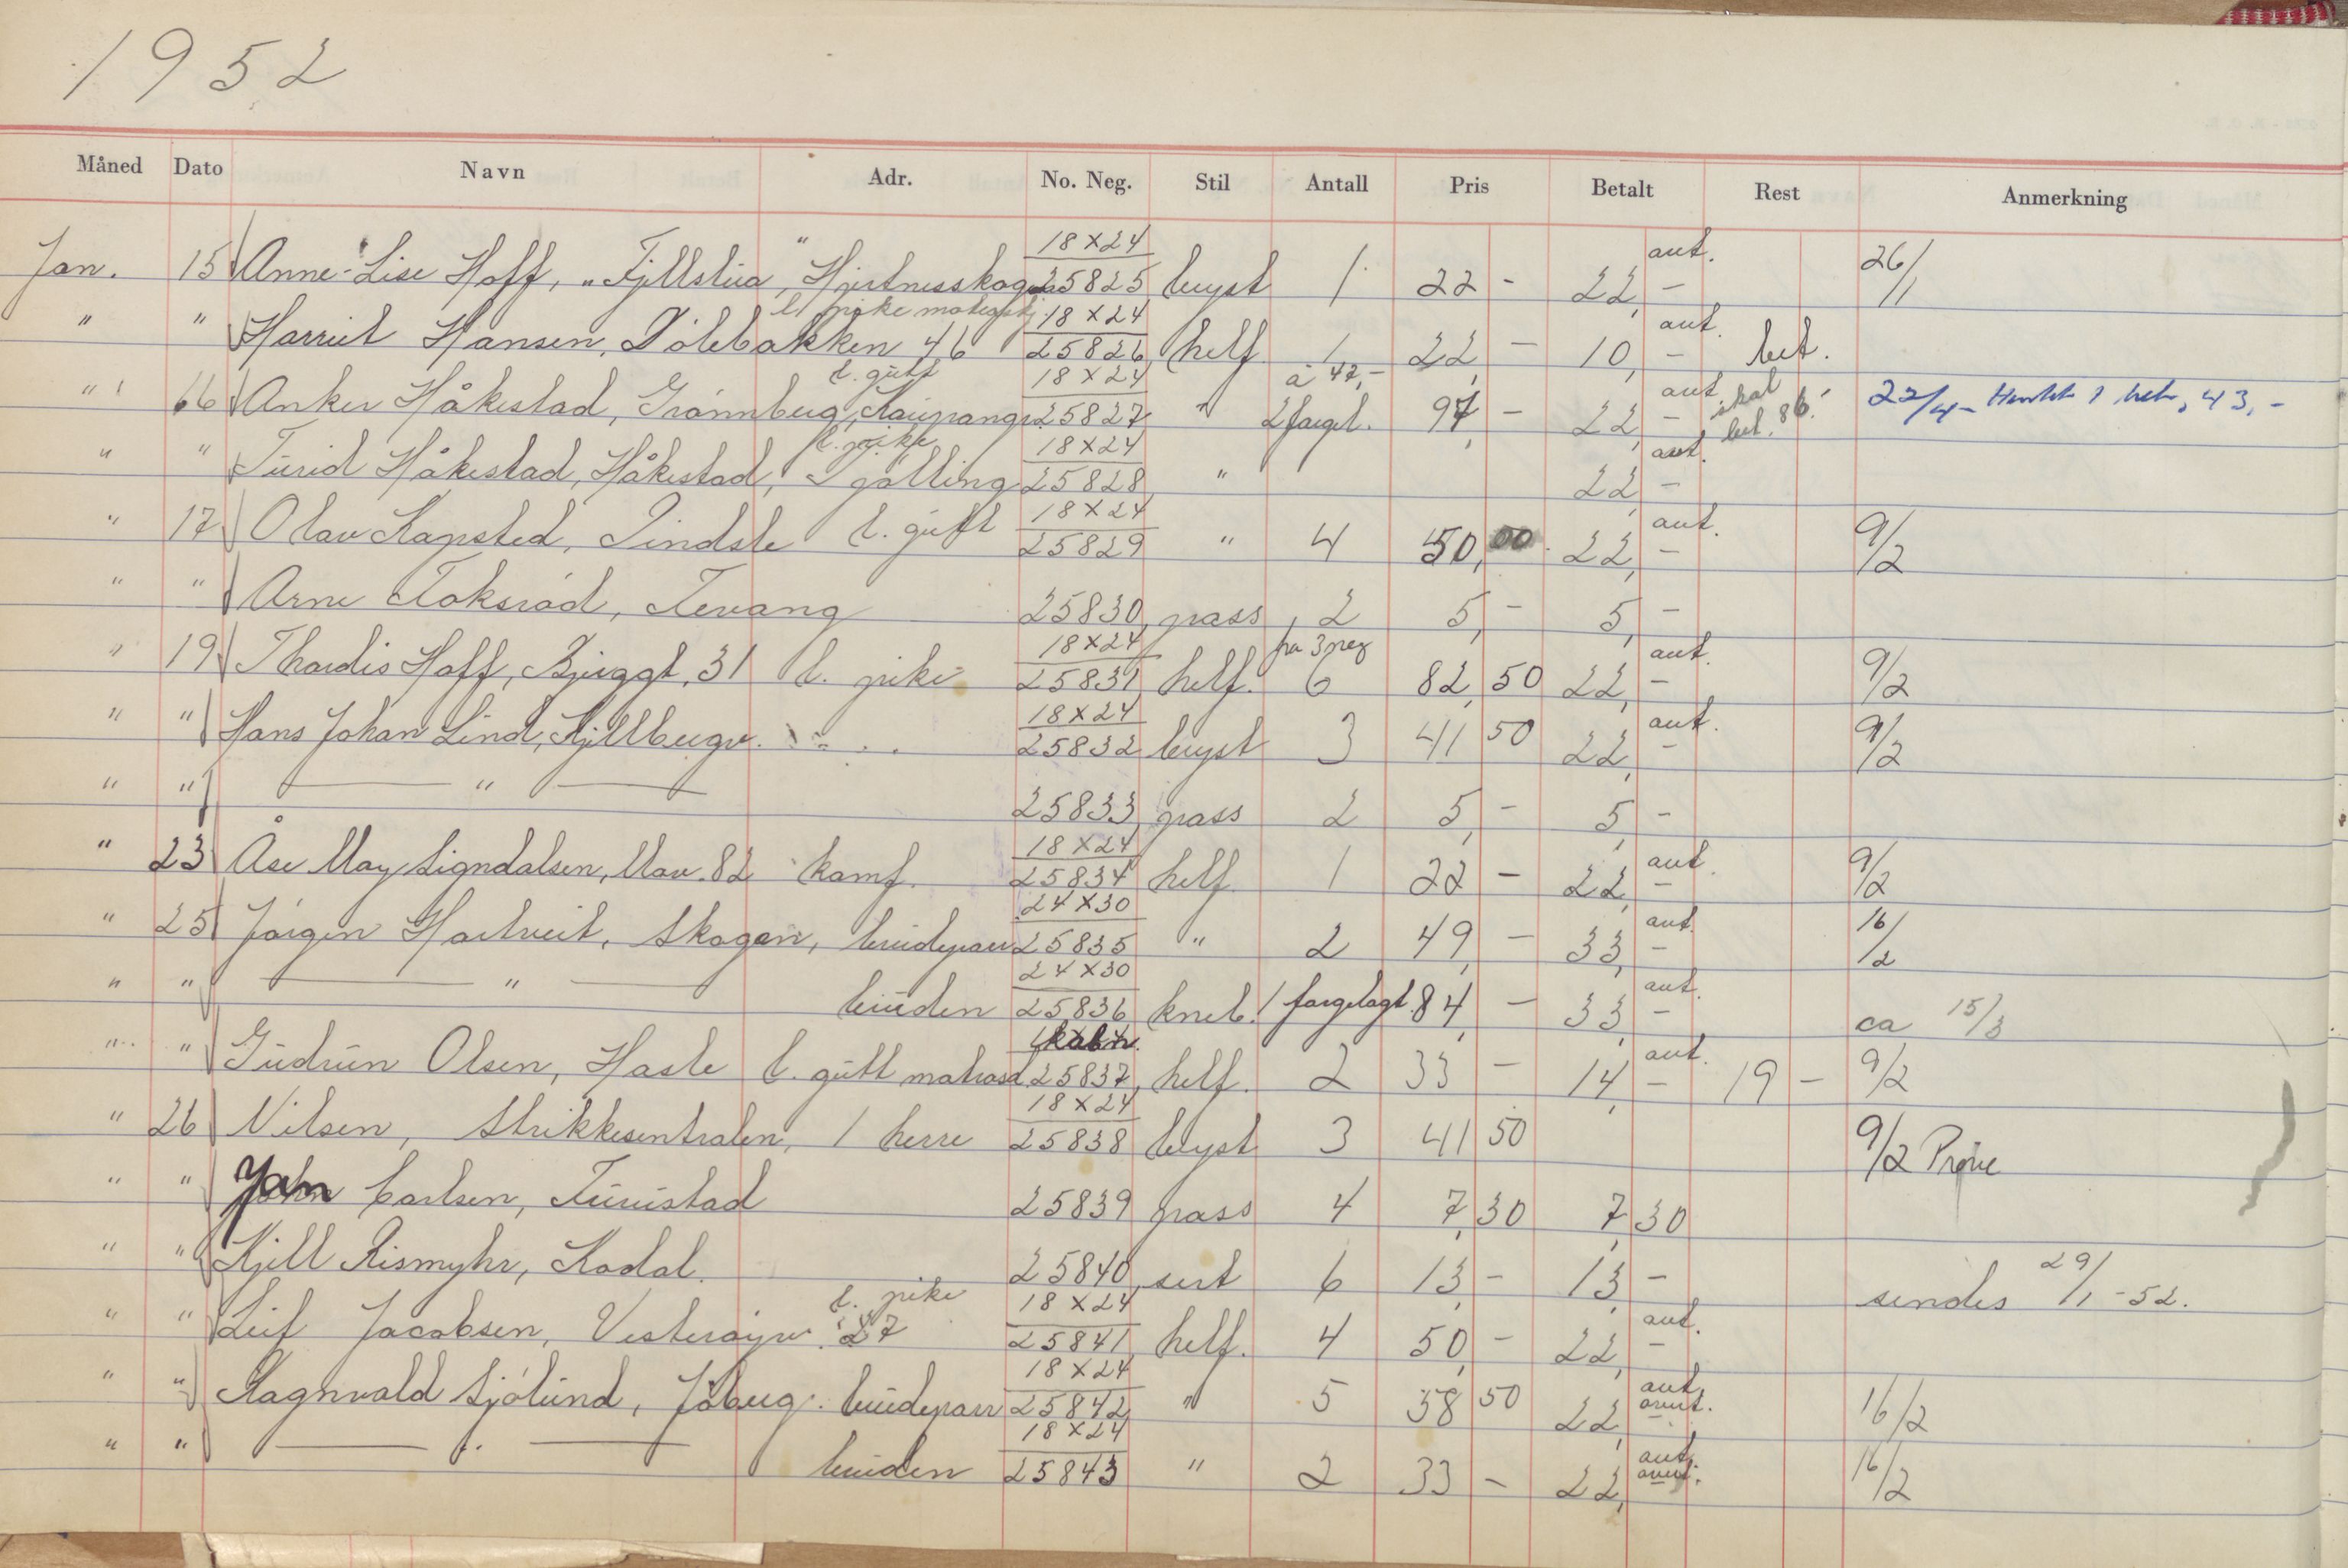 1952
Måned Dato Navn Adr. No. Neg. Stil Antall Pris Betalt Rest Anmerkning
Jan. 15 Anne-Lise Hoff, "Fjellstua", Hjertnesskogen 18x24 25825 byst 1 22 - 22,- ant. 26/1
" " Harriet Hansen, Dølebakken 46 l. pike 18x24 25826 helf. 1 22,- 10,- ant. bet.
" 16 Anker Håkestad, Grønnberg, Kaupang l. gutt 18x24 25827 " à 47,- 2 fargel. 94,- 22,- ant. skal bet. 86. 22/4 - Hentet 1 bet. 43,-
" " Turid Håkestad, Håkestad, Tjølling l. pike 18x24 25828 " 22,- ant.
" 17 Olav Kapsted, Lindsle l. gutt 18x24 25829 " 4 50,00 22,- ant. 9/2
" " Arne Floksrød, Tevang 25830 pass 2 5,- 5,-
" 19 Thordis Hoff, Bjerggt. 31 l. pike 18x24 25831 helf. fra 3 neg 6 82,50 22,- ant. 9/2
" " Hans Johan Lind, Kjellbergv. 18x24 25832 byst 3 41 50 22,- ant. 9/2
" " — " — 25833 pass 2 5,- 5,-
" 23 Åse May Signdalsen, Mav. 82 komf. 18x24 25834 helf. 1 22 - 22,- ant. 9/2
" 25 Jørgen Hartveit, Skogen, brudepar 24x30 25835 " 2 49,- 33,- ant. 16/2
" " — " — bruden 24x30 25836 kneb. 1 fargelagt 84,- 33,- ant. ca 15/3
" " Gudrun Olsen, Hasle l. gutt matrosd. kabn. 25837 helf. 2 33 - 14,- ant. 19 - 9/2
" 26 Nilsen, Strikkesentralen, 1 herre 18x24 25838 byst 3 41 50 9/2 Prøve
" " Jan Carlsen, Furustad 25839 pass 4 7,30 7,30
" " Kjell Rismyhr, Kodal. 25840 sert 6 13,- 13,- sendes 29/1-52.
" " Leif Jacobsen, Vesterøyv. 27 l. pike 18x24 25841 helf. 4 50,- 22,- ant.
" " Ragnvald Sjølund, Jåberg. brudepar 18x24 25842 " 5 58 50 22,- ant. 16/2
" " — " — bruden 18x24 25843 " 2 33 - 22,- ant. 16/2